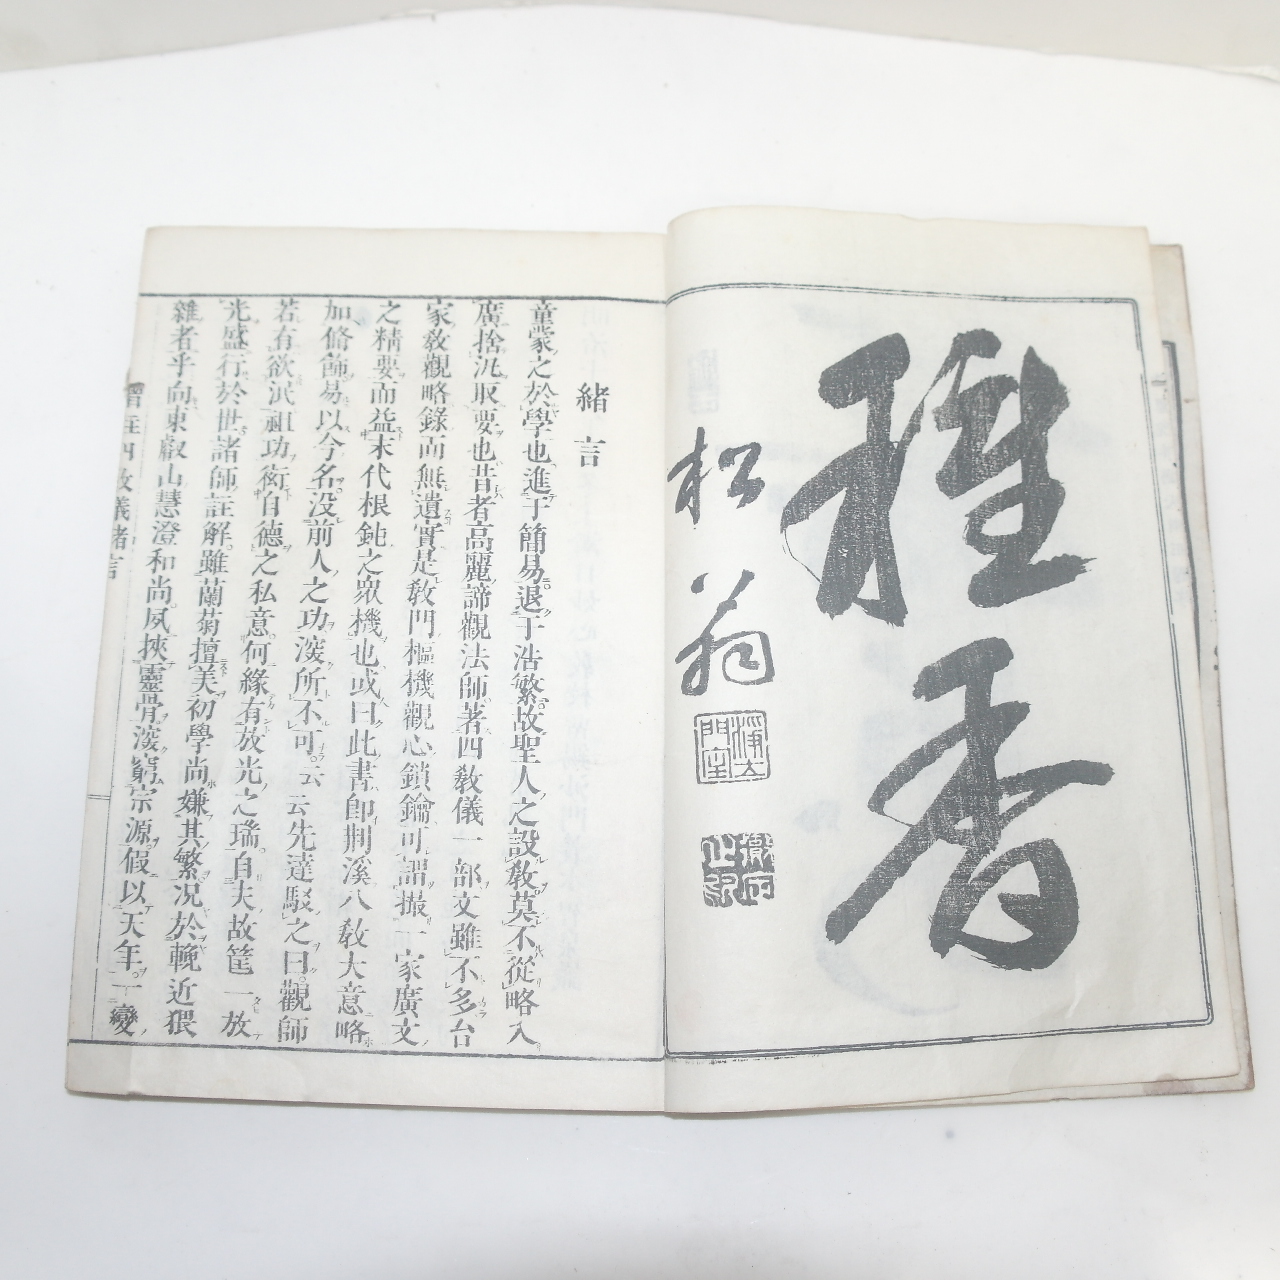 種香
松翁
緒言
童蒙之於學也進于簡易退于浩繁故聖人之設敎莫不從略入
廣捨汎取要也昔者高麗諦觀法師著四敎儀一部文雖不多台
家敎觀略錄而無遺實是敎門樞機觀心鎖鑰可謂撮一家廣文
之精要而益末代根鈍之衆機也或曰此書卽荆溪八敎大意略
加脩飾易以今名没前人之功滚所不可云云先達駁之曰觀師
若有欲泯祖功衒自德之私意何緣有放光之瑞自夫故筐一放
光盛行於世諸師註解雖蘭菊擅美初學尚嫌其繁况於輓近猥
雜者乎向東叡山慧澄和尚夙挾靈骨滚窮宗源假以天年一變
增註四敎儀緖言